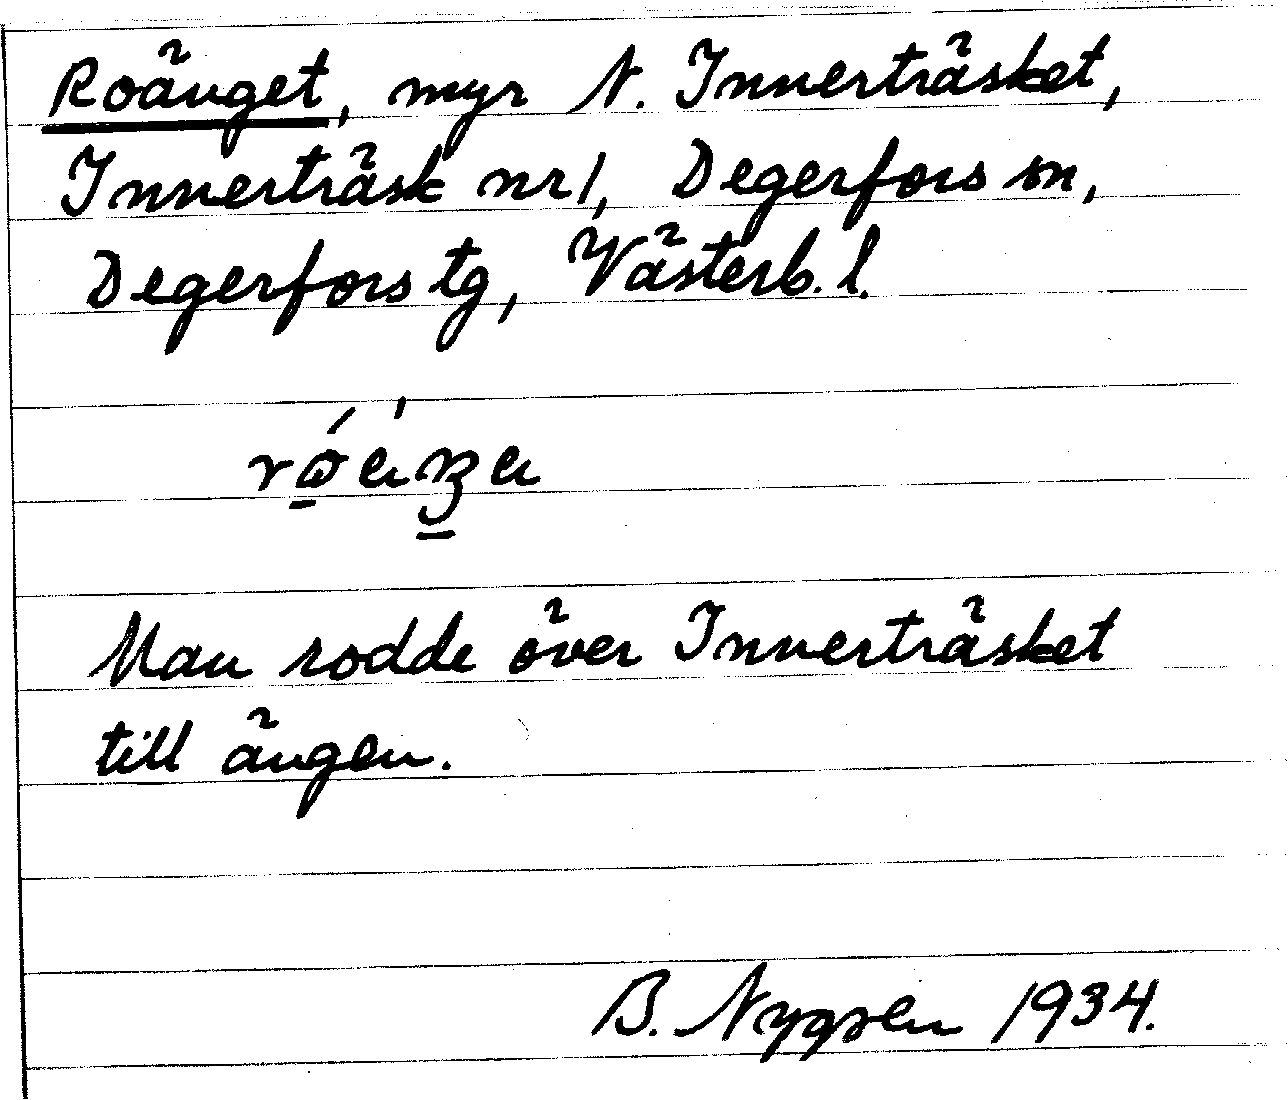 Roänget, myr N. Innerträsket,
Innerträsk nr 1, Degerfors sn,
Degerfors tg, Västerb. l.
Man rodde över Innerträsket
till ängen.
B. 1934.